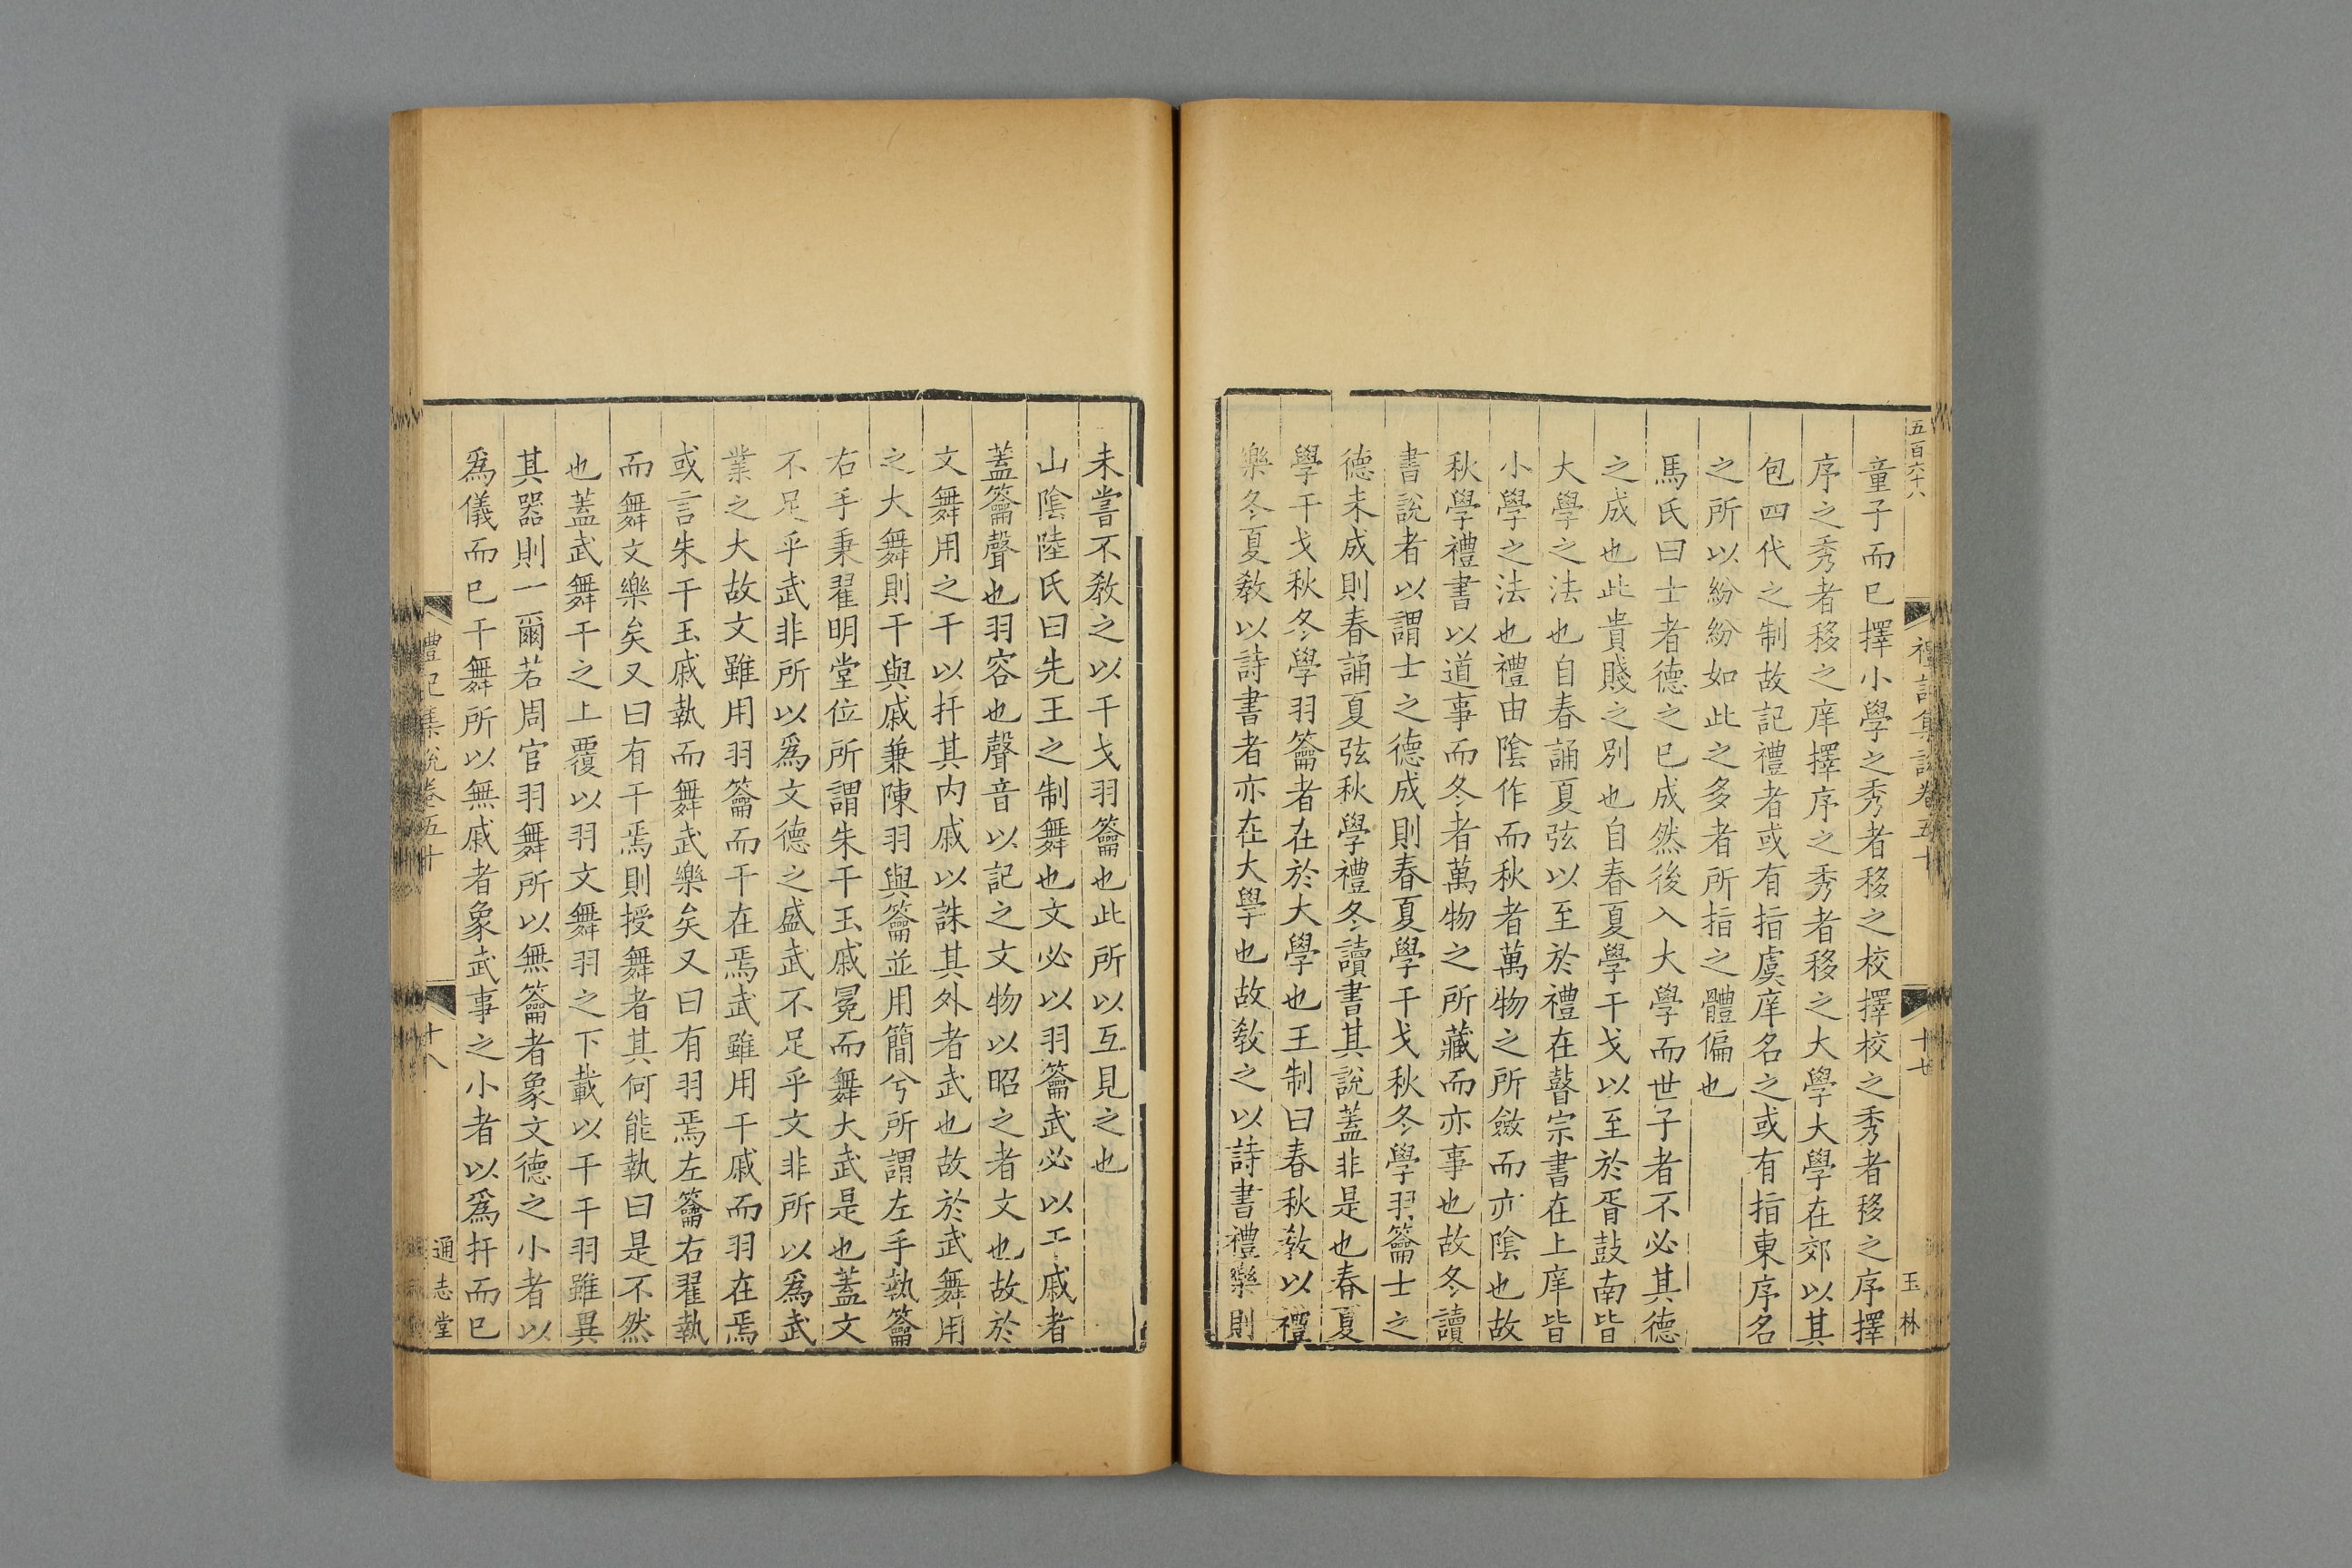 五百六十八
禮記集說卷五十
十七
玉林
童子而已擇小學之秀者移之校擇校之秀者移之序擇
序之秀者移之庠擇序之秀者移之大學大學在郊以其
包四代之制故記禮者或有指虞庠名之或有指東序名
之所以紛紛如此之多者所指之體偏也
馬氏曰士者德之已成然後入大學而世子者不必其德
之成也此貴賤之別也自春夏學干戈以至於胥鼓南皆
大學之法也自春誦夏弦以至於禮在瞽宗書在上庠皆
小學之法也禮由陰作而秋者萬物之所斂而亦陰也故
秋學禮書以道事而冬者萬物之所藏而亦事也故冬讀
書說者以謂士之德成則春夏學干戈秋冬學羽籥士之
德未成則春誦夏弦秋學禮冬讀書其說蓋非是也春夏
學干戈秋冬學羽籥者在於大學也王制曰春秋敎以禮
樂冬夏敎以詩書者亦在大學也故敎之以詩書禮樂則
未嘗不敎之以干戈羽籥也此所以互見之也
山陰陸氏曰先王之制舞也文必以羽籥武必以干戚者
蓋籥聲也羽容也聲音以記之文物以昭之者文也故於
文舞用之干以扞其內戚以誅其外者武也故於武舞用
之大舞則干與戚兼陳羽與籥並用簡兮所謂左手執籥
右手秉翟明堂位所謂朱干玉戚冕而舞大武是也蓋文
不足乎武非所以爲文德之盛武不足乎文非所以爲武
業之大故文雖用羽籥而干在焉武雖用干戚而羽在焉
或言朱干玉戚執而舞武樂矣又曰有羽焉左籥右翟執
而舞文樂矣又曰有干焉則授舞者其何能執曰是不然
也蓋武舞干之上覆以羽文舞羽之下載以干干羽雖異
其器則一爾若周官羽舞所以無籥者象文德之小者以
爲儀而已干舞所以無戚者象武事之小者以爲扞而已
禮記集說卷五十
十八
通志堂